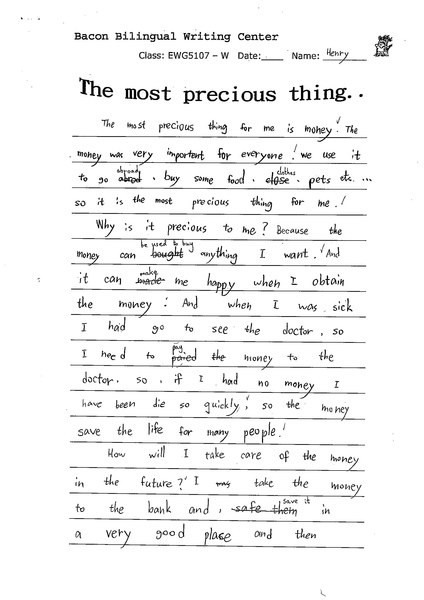 Bacon Bilingual Writing Center
Class: EWG5107 – W Date:____ Name: Henry
The most precious thing..
The most precious thing for me is money! The
money was very important for everyone! we use it
abroady
to go abrod, buy some food, close clothes, pets etc. ...
so it is the most precious thing for me.!
Why is it precious to me? Because the
be used to buy
money can bought anything I want.! And
make
it can made me happy when I obtain
the money! And when I was sick
I had go to see the doctor, so
pay
I need to paied the money to the
doctor. so, if I had no money I
have been die so quickly! so the money
save the life for many people.!
How will I take care of the money
in the future?' I was take the money
save it
to the bank and, safe them in
a very good place and then